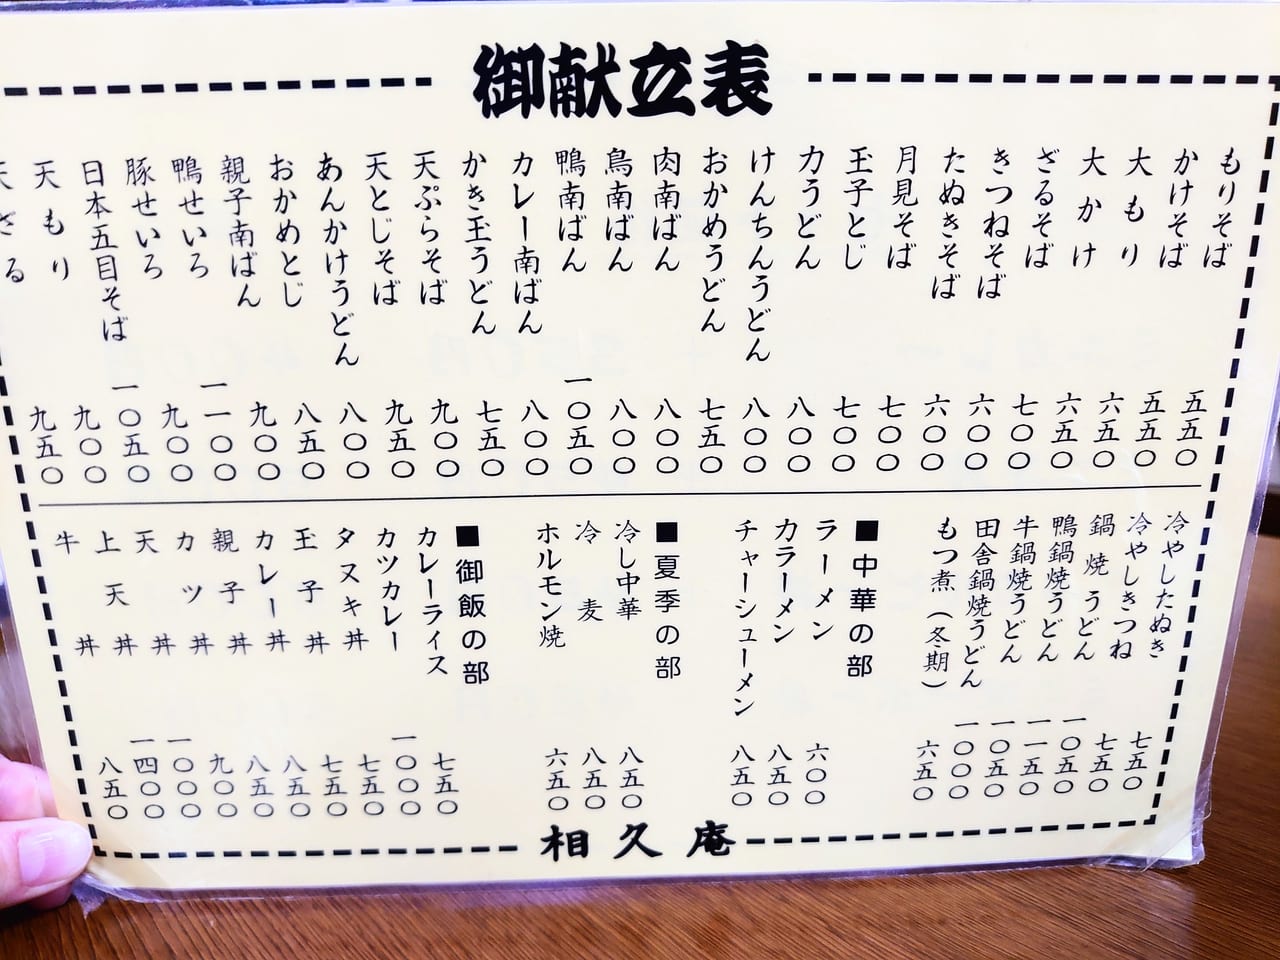 御献立表
もりそば 五五〇
かけそば 五五〇
大もり 六五〇
大かけ 六五〇
ざるそば 七〇〇
きつねそば 六〇〇
たぬきそば 六〇〇
月見そば 七〇〇
玉子とじ 七〇〇
力うどん 八〇〇
けんちんうどん 八〇〇
おかめうどん 七五〇
肉南ばん 八〇〇
鳥南ばん 八〇〇
鴨南ばん 一〇五〇
カレー南ばん 八〇〇
かき玉うどん 七五〇
天ぷらそば 九〇〇
天とじそば 九五〇
あんかけうどん 八〇〇
おかめとじ 八五〇
親子南ばん 九〇〇
鴨せいろ 一一〇〇
豚せいろ 九〇〇
日本五目そば 一〇五〇
天もり 九〇〇
天ざる 九五〇
冷やしたぬき 七五〇
冷やしきつね 七五〇
鍋焼うどん 一〇五〇
鴨鍋焼うどん 一一五〇
牛鍋焼うどん 一〇五〇
田舎鍋焼うどん 一〇〇〇
もつ煮（冬期） 六五〇
■中華の部
ラーメン 六〇〇
力ラーメン 八五〇
チャーシューメン 八五〇
■夏季の部
冷し中華 八五〇
冷麦 八五〇
ホルモン焼 六五〇
■御飯の部
カレーライス 七五〇
カツカレー 一〇〇〇
タヌキ丼 七五〇
玉子丼 七五〇
カレー丼 八五〇
親子丼 八五〇
カツ丼 九〇〇
天丼 一〇〇〇
上天丼 一四〇〇
牛丼 八五〇
相久庵